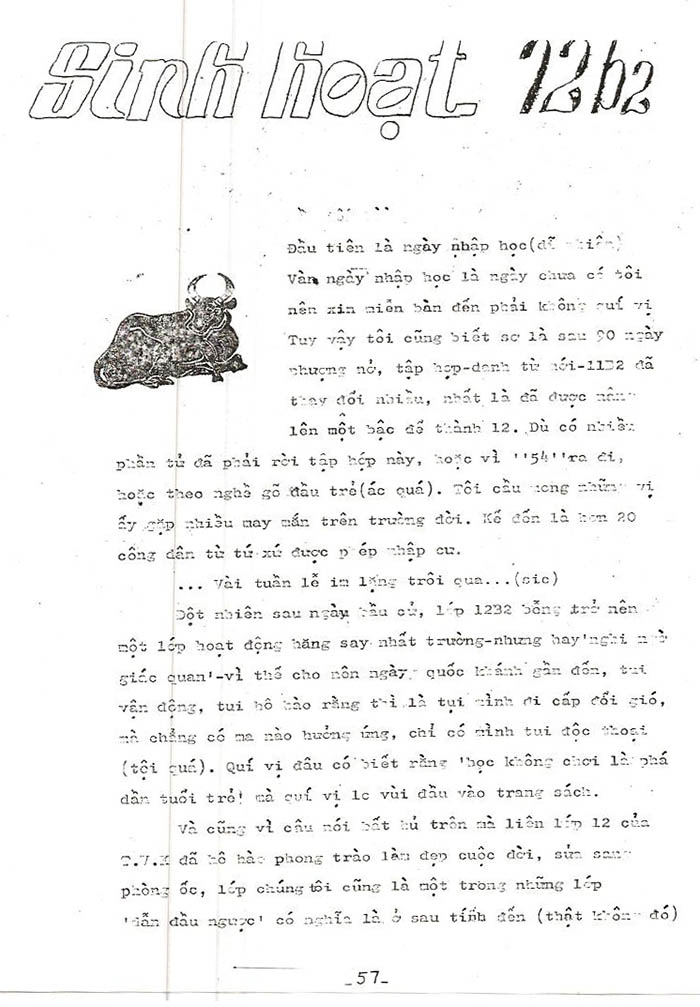 Sinh hoạt 12b2
Đầu tiên là ngày nhập học(dĩ nhiên)
Vàn ngày nhập học là ngày chưa có tôi
nên xin miễn bàn đến phải không quí vị
Tuy vậy tôi cũng biết sơ là sau 90 ngày
phượng nở, tập hợp-danh từ mới-11B2 đã
thay đổi nhiều, nhất là đã được nâng
lên một bậc để thành 12. Dù có nhiều
phần tử đã phải rời tập hợp này, hoặc vì ''54''ra đi,
hoặc theo nghề gõ đầu trẻ(ác quá). Tôi cầu mong những vị
ấy gặp nhiều may mắn trên trường đời. Kế đến là hơn 20
công dân từ tứ xứ được phép nhập cư.
... Vài tuần lễ im lặng trôi qua...(sic)
Đột nhiên sau ngày bầu cử, lớp 12B2 bỗng trở nên
một lớp hoạt động hăng say nhất trường-nhưng hay'nghi
giác quan'-vì thế cho nên ngày quốc khánh gần đến, tui
vận động, tui hô hào rằng thì là tụi mình đi cấp đổi gió,
mà chẳng có ma nào hưởng ứng, chỉ có mình tui độc thoại
(tội quá). Quí vị đâu có biết rằng 'học không chơi là phá
dần tuổi trẻ! mà quí vị lo vùi đầu vào trang sách.
Và cũng vì câu nói bất hủ trên mà liên lớp 12 của
đã hô hào phong trào làm đẹp cuộc đời, sửa sang
phòng ốc, lớp chúng tôi cũng là một trong những lớp
'dẫn đầu ngược' có nghĩa là ở sau tính đến (thật không đó)
_57_